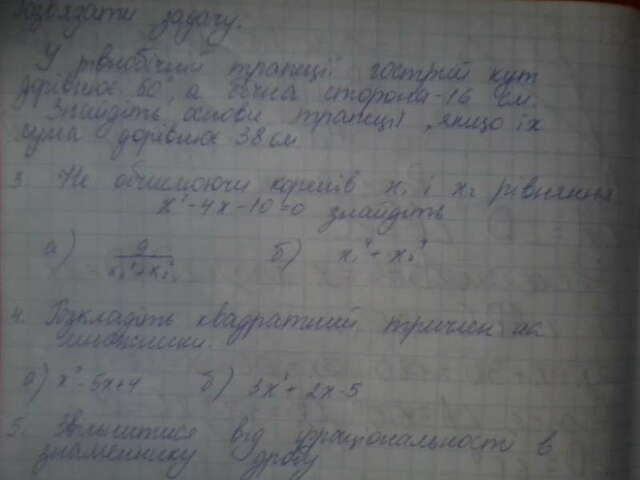 Розв'язати задачу.
У рівнобічній трапеції гострий кут
дорівнює 60°, а бічна сторона - 16 см.
Знайдіть основи трапеції, якщо їх
сума дорівнює 38 см
3. Не обчислюючи коренів x₁ і x₂ рівняння
x² - 4x - 10 = 0 знайдіть
а) б)
4. Розкладіть квадратний тричлен на
множники.
а) x² - 5x + 4 б) 3x² + 2x - 5
5. Звільнитися від ірраціональності в
знаменнику дробу